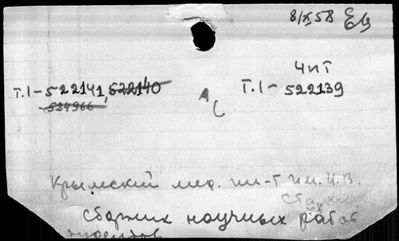 8/X 58
ЧиТ
Т.1-522141, 522140
Т.1-522139
524966
Крымский мед. ин-т им. И.В.
Сталина
Сборник научных работ
студентов